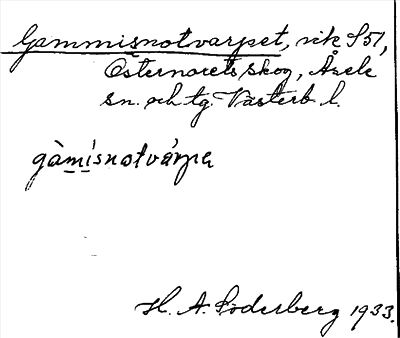 Gammisnotvarpet, vik S51,
Östernorets skog, Åsele
sn. och tg. Västerb l.
gàmísnotvárpa
H. A. Söderberg 1933.